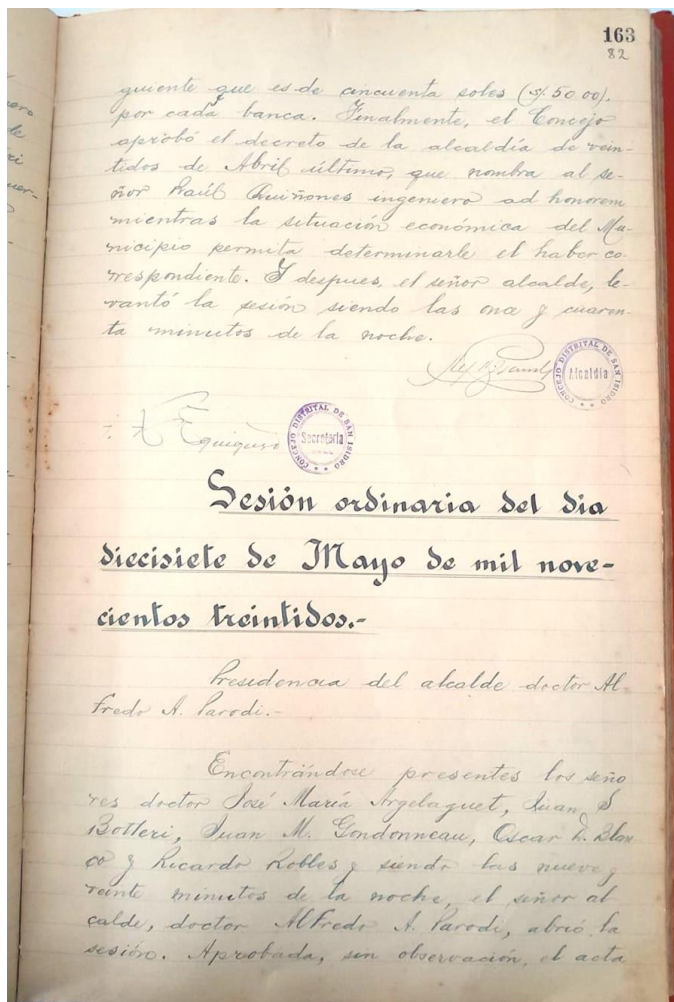 163
82
guiente que es de cincuenta soles (S/. 50.00).
por cada banca. Finalmente, el Concejo
aprobó el decreto de la alcaldía de vein-
tidos de Abril último, que nombra al se-
ñor Raúl Quiñones ingeniero ad honorem
mientras la situación económica del Mu-
nicipio permita determinarle el haber co-
rrespondiente. I despues, el señor alcalde, le-
vantó la sesión siendo las once y cuaren-
ta minutos de la noche.
CONCEJO DISTRITAL DE SAN ISIDRO
Alcaldía
CONCEJO DISTRITAL DE SAN ISIDRO
Secretaría
Sesión ordinaria del dia
diecisiete de Mayo de mil nove-
cientos treintidos.-
Presidencia del alcalde doctor Al-
fredo A. Parodi.-
Encontrándose presentes los seño
res doctor José María Argelaguet, Juan S.
Botteri, Juan M. Gondonneau, Oscar D. Blan-
co y Ricardo Robles y siendo las nueve y
veinte minutos de la noche, el señor al
calde, doctor Alfredo A. Parodi, abrió la
sesión. Aprobada, sin observación, el acta